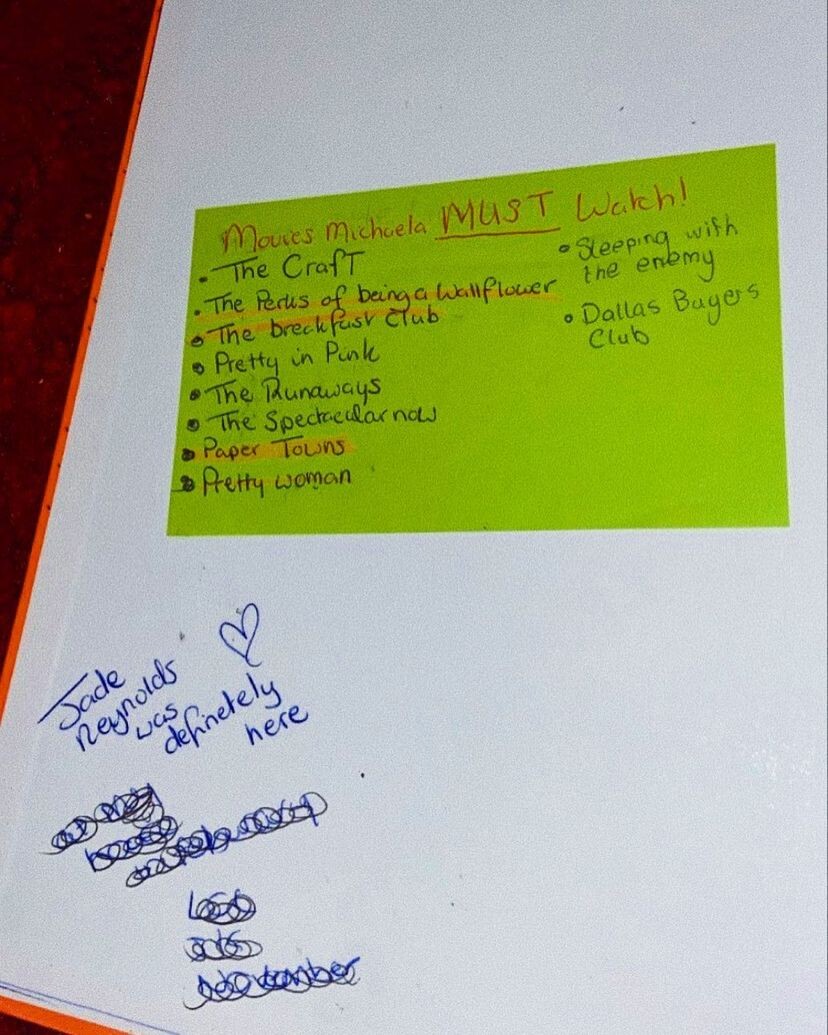 Movies Michaela MUST Watch!
• The Craft
• The Perks of being a Wallflower
• The breckfast Club
• Pretty in Pink
• The Runaways
• The Spectacular now
• Paper Towns
• Pretty woman
• Sleeping with
the enemy
• Dallas Buyers
Club
Jade
Reynolds
was
definetely
here